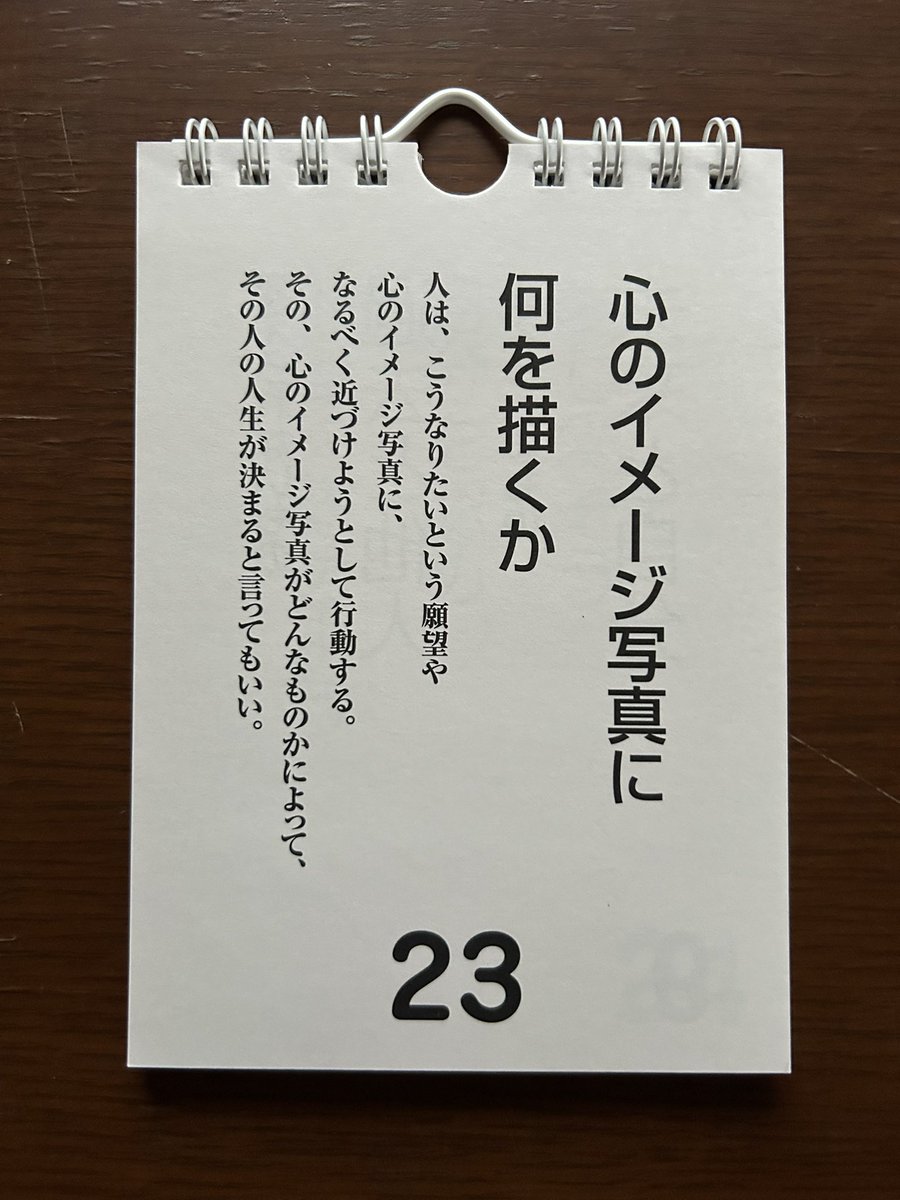 心のイメージ写真に
何を描くか
人は、こうなりたいという願望や
心のイメージ写真に、
なるべく近づけようとして行動する。
その、心のイメージ写真がどんなものかによって、
その人の人生が決まると言ってもいい。
23